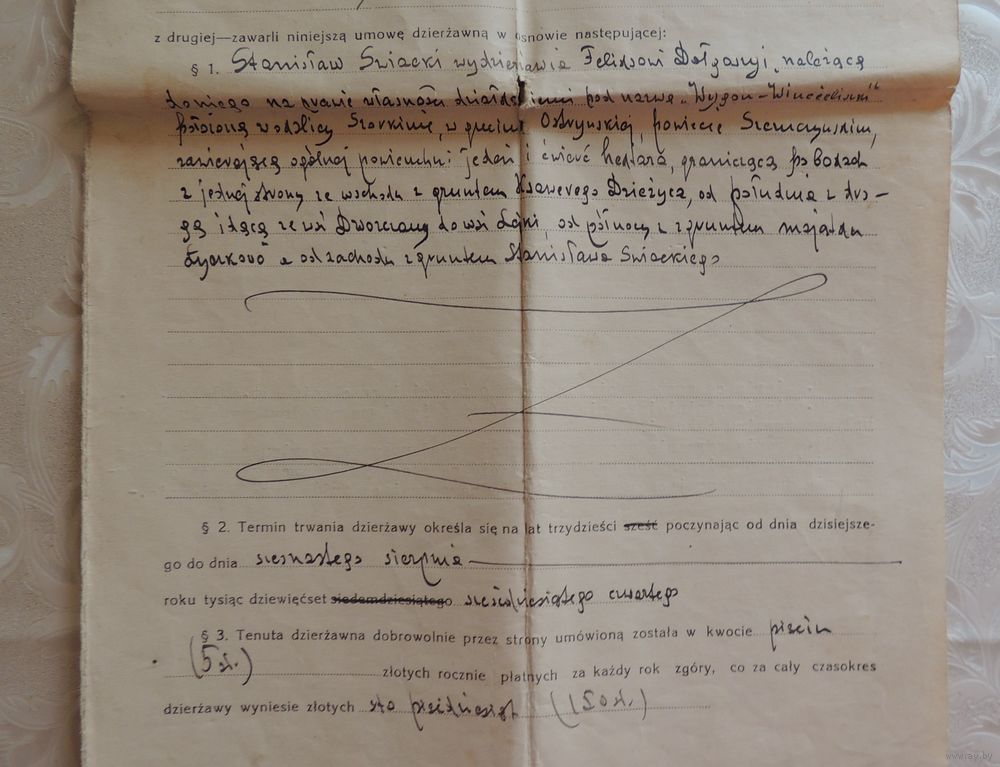 z drugiej—zawarli niniejszą umowę dzierżawną w osnowie następującej:
§ 1. Stanisław Sviacki wydzierżawia Feliksowi, należącą
do niego na prawie własności działkę ziemi pod nazwą „Wygon-
położoną w okolicy, w gminie Ostryńskiej, powiecie Szczuczyńskim,
zawierającą ogólnej powierzchni: jeden i ćwierć hektara, graniczącą po bokach
z jednej strony ze wschodu z gruntem Ksawerego, od południa z dro-
gą idącą ze wsi do wsi, od północy z gruntem majątku
a od zachodu z gruntem Stanisława Sviackiego
§ 2. Termin trwania dzierżawy określa się na lat trzydzieści sześć poczynając od dnia dzisiejsze-
go do dnia szesnastego sierpnia
roku tysiąc dziewięćset siedemdziesiątego sześćdziesiątego czwartego
§ 3. Tenuta dzierżawna dobrowolnie przez strony umówioną została w kwocie pięciu
(5 zł.) złotych rocznie płatnych za każdy rok zgóry, co za cały czasokres
dzierżawy wyniesie złotych sto pięćdziesiąt (150 zł.)
www.ay.by